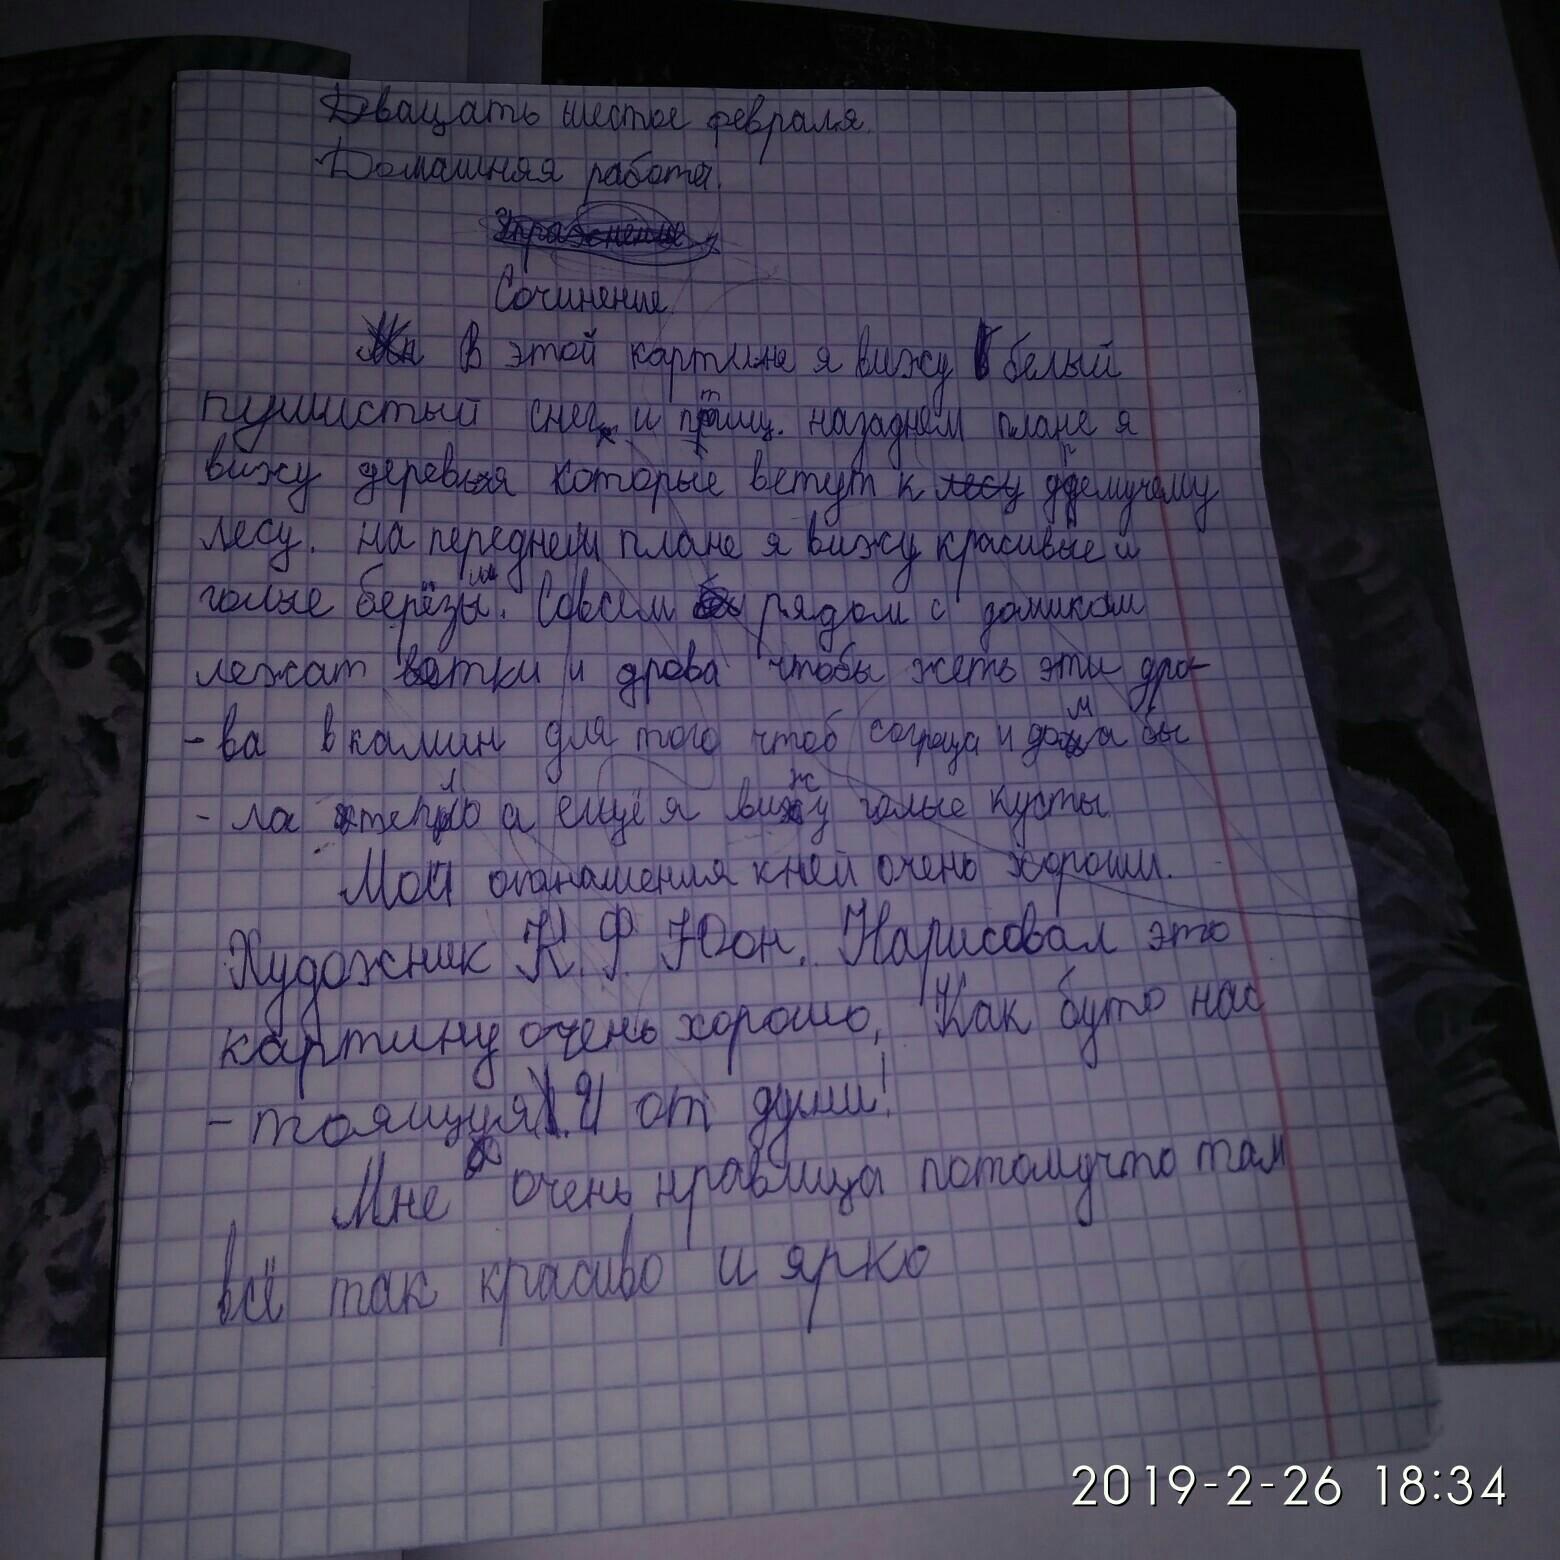 Дващать шестое февраля.
Домашняя работа.
Упражнение
Сочинение
В этой картине я вижу белый
пушистый снег и птиц. назаднем плане я
вижу деревья которые ветут к лесу дремучему
лесу. на переднем плане я вижу красивые и
голые берёзы. Совсем рядом с домиком
лежат ветки и дрова чтобы жеть эти дра-
-ва в камин для того чтоб согреца и дома бы
-ла тепло а ещё я вижу голые кусты
Мой отнашения кней очень хороши.
Художник К. Ф. Юон. Нарисовал это
картину очень хорошо, Как буто нас
-тоящуя. И от души!
Мне очень нравица потомучто там
всё так красиво и ярко
2019-2-26 18:34